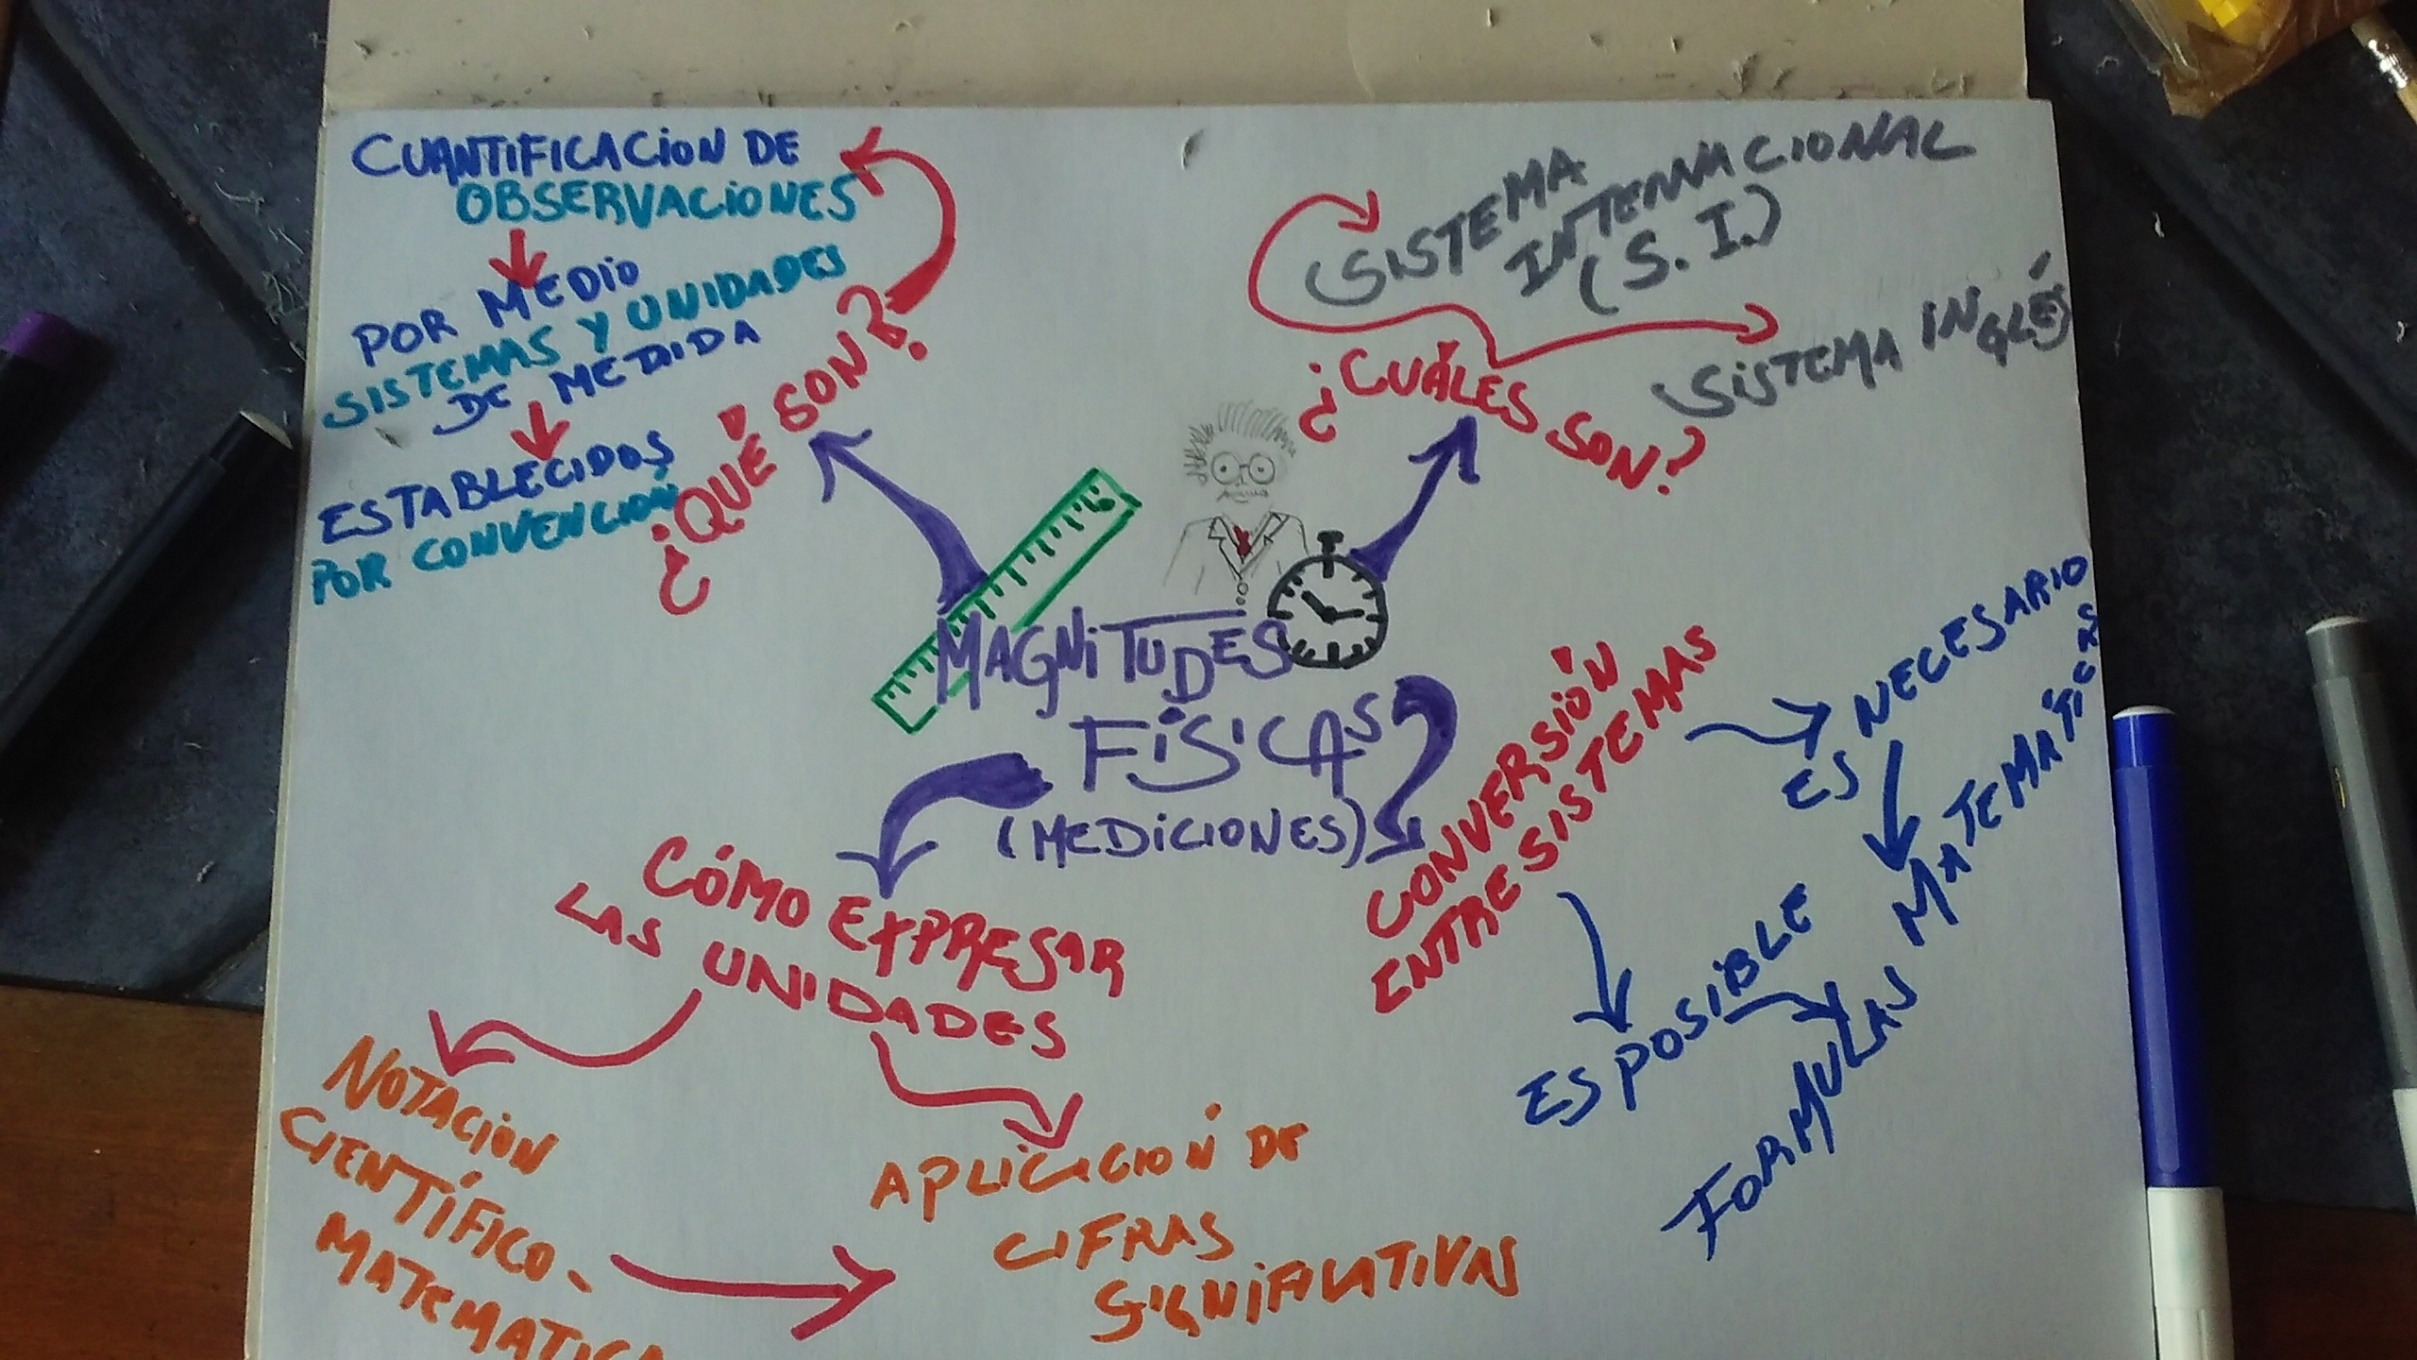 CUANTIFICACION DE
OBSERVACIONES
POR MEDIO
SISTEMAS Y UNIDADES
DE MEDIDA
ESTABLECIDOS
POR CONVENCIÓN
¿QUÉ SON?
SISTEMA
INTERNACIONAL
(S.I.)
SISTEMA INGLÉS
¿CUÁLES SON?
MAGNITUDES
FÍSICAS
(MEDICIONES)
CÓMO EXPRESAR
LAS UNIDADES
NOTACIÓN
CIENTÍFICO-
MATEMATICA
APLICACIÓN DE
CIFRAS
SIGNIFICATIVAS
CONVERSIÓN
ENTRE SISTEMAS
ES NECESARIO
ES POSIBLE
FORMULAS MATEMÁTICAS